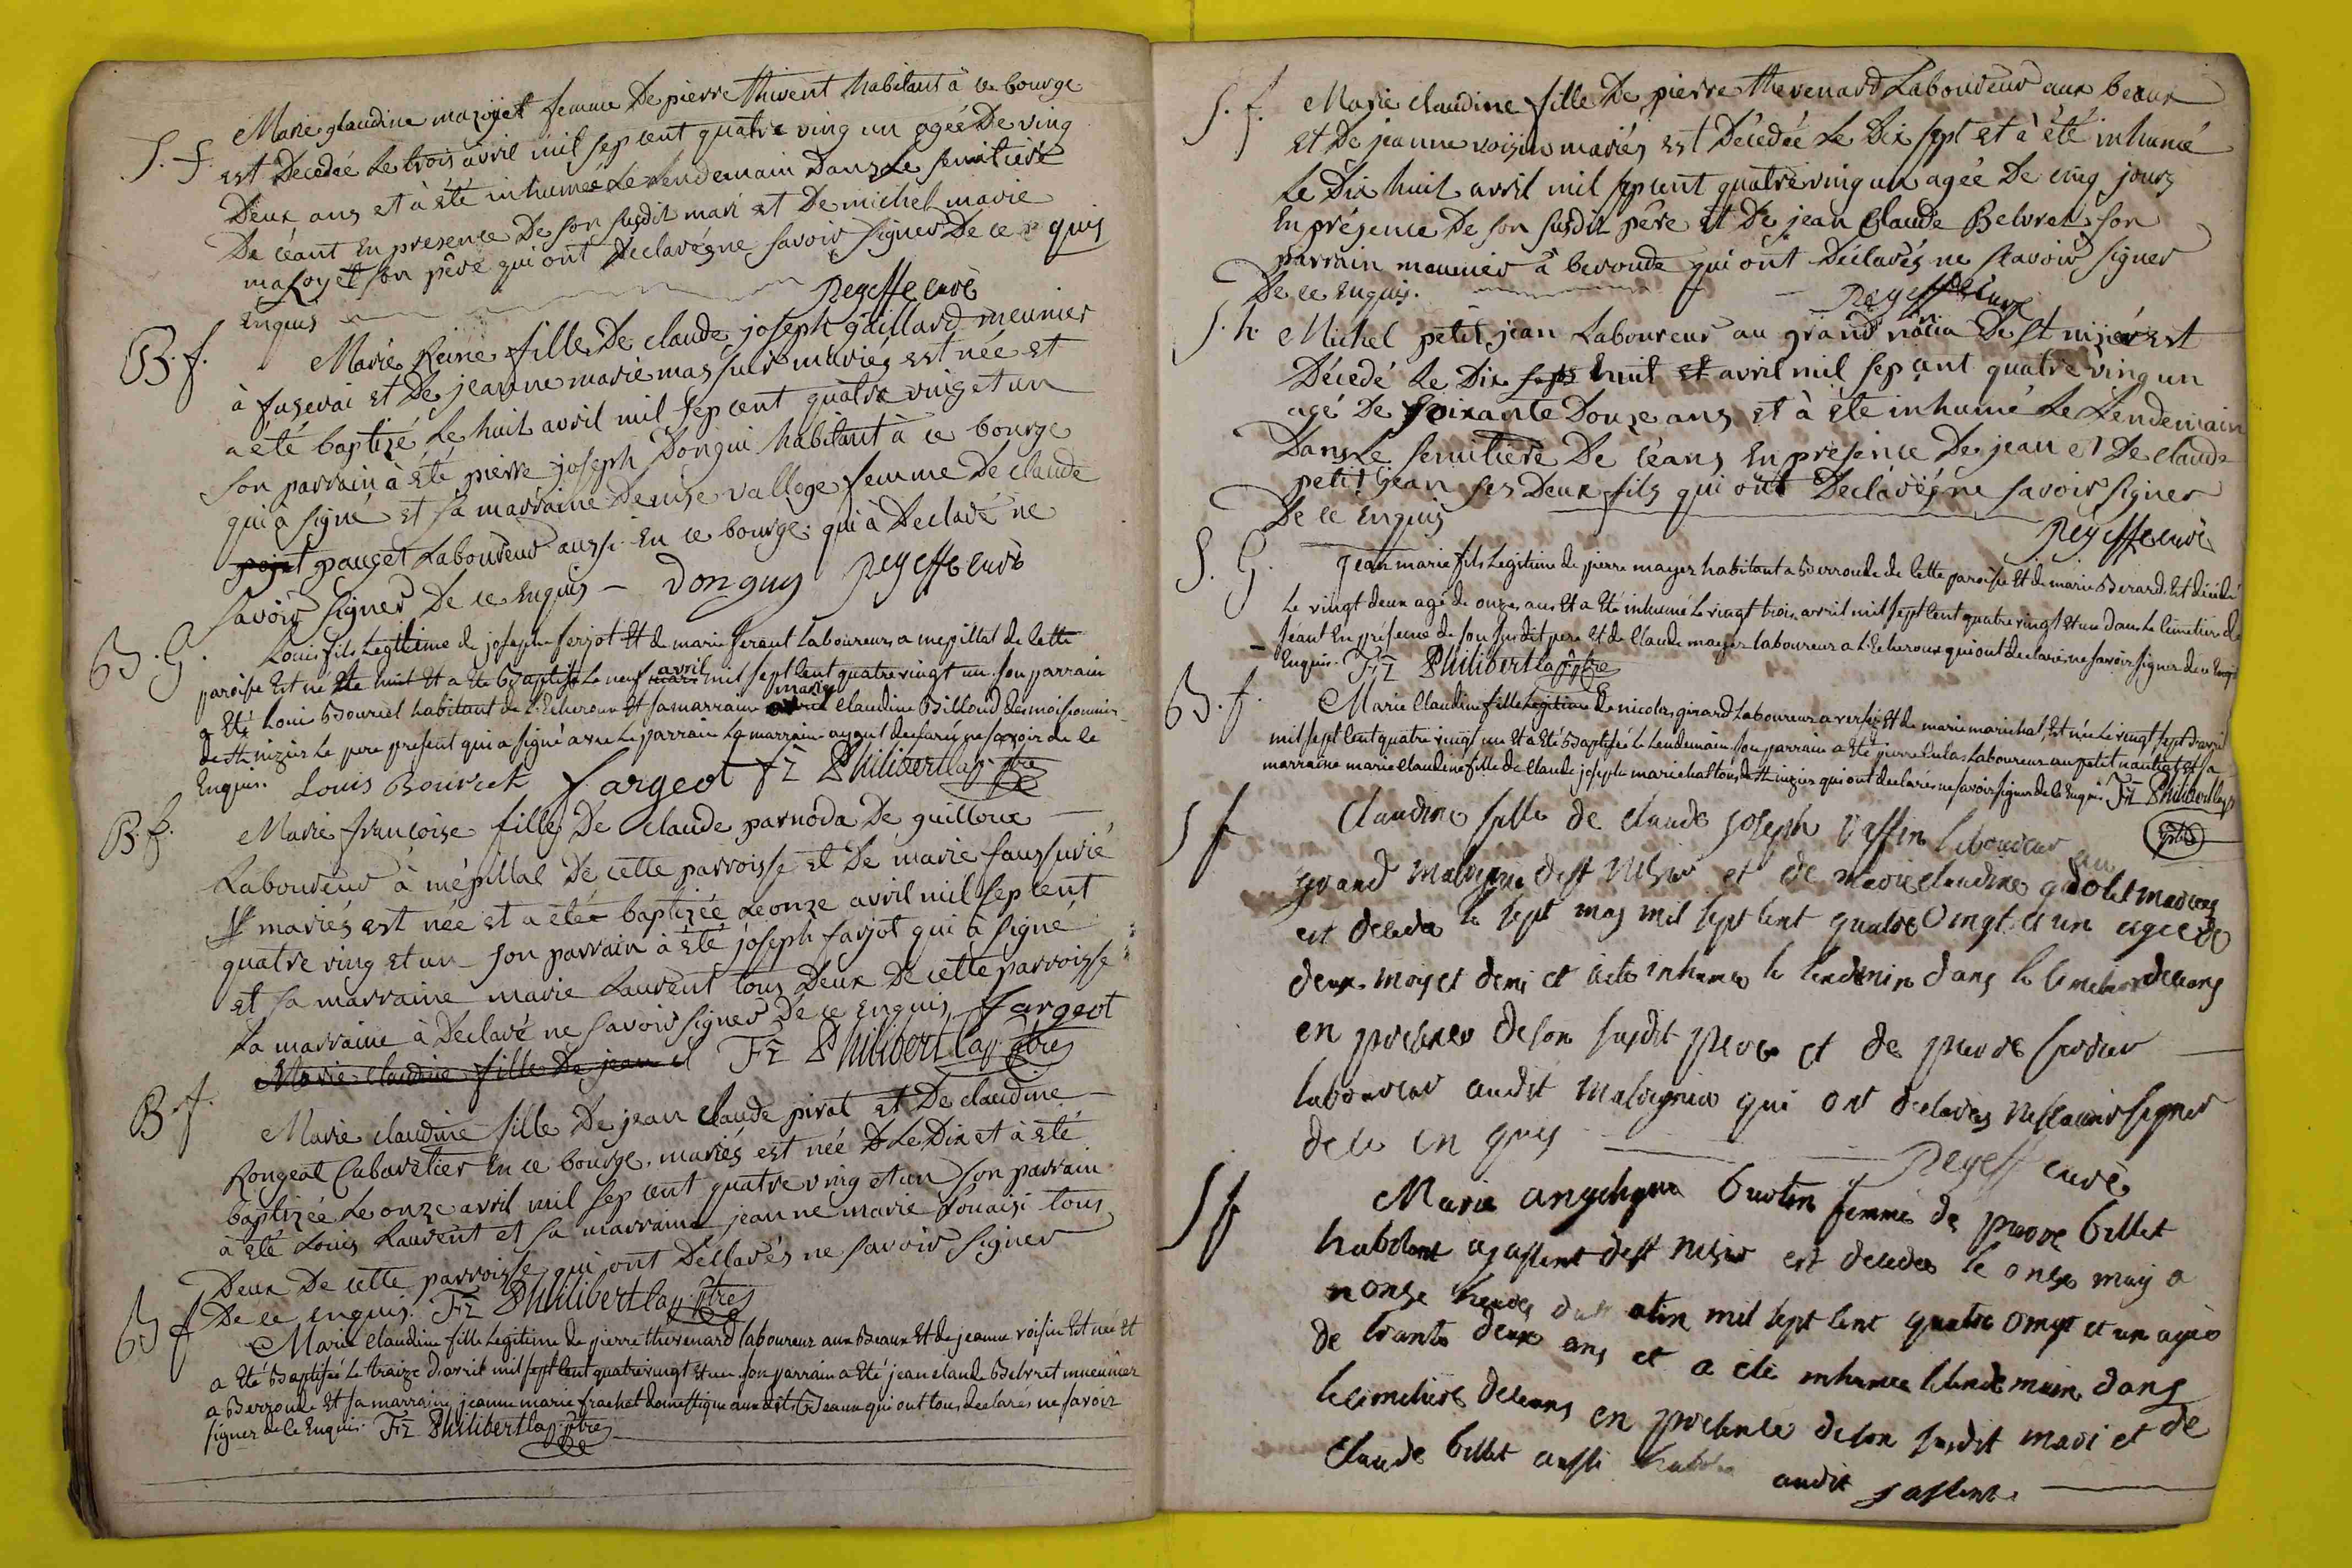 S. f. Marie glaudine mazoyet femme De pierre thivent habitant à ce bourge
est Décedée Le trois avril mil sep cent quatre ving un agée De ving
Deux ans et à été inhumée Le Lendemain Dans Le semitiere
De céant En presence De son susdit mari et De michel marie
mazoyet son pere qui ont Declarés ne savoir signer De ce quis
Enquis Regeffe curé
B. f. Marie Reine fille De claude joseph gaillard meunier
à fusevai et De jeanne marie mas suir mariés est née et
a été baptizé Le huit avril mil sep cent quatre ving et un
son parrain à été pierre joseph Dongui habitant à ce bourge
qui à signé et sa marraine Denise valloge femme De claude
pauget Laboureur aussi En ce bourge qui à Declaré ne
savoir signer De ce Enquis – Donguy Regeffe curé
B. G. Louis fils Legitime de joseph ferjot Et de marie ferant Laboureurs a mepillat de Cette
paroisse Est né Le huit Et a Eté Baptisé Le neuf avril mil sept Cent quatre vingt un son parrain
a Eté Loui Bourcet habitant de L'Echeroux Et sa marraine marie Claudine Billoud des moissonnier
de st nizier Le pere present qui a signé avec Le parrain La marraine ayant declaré ne savoir de ce
Enquis. Louis Bourcet fargeot fz Philibert Lap. ptre
B. f. Marie françoise fille De Claude parnoda De guilloux
Laboureur à mépillat De cette parroisse et De marie faussurié
mariés est née et a été baptizée Le onze avril mil sep cent
quatre ving et un son parrain à été joseph farjot qui à signé
et sa marraine marie Laurent tous Deux De cette parroisse
La marraine à Declaré ne savoir signer De ce Enquis fargeot
Marie claudine fille De jean cl Fz Philibert Lap. ptre
B. f. Marie claudine fille De jean claude pirat et De claudine
Rongeat Cabaretier En ce bourge mariés est née Le Dix et à été
baptizée Le onze avril mil sep cent quatre ving et un son parrain
à été Louis Laurent et sa marraine jeanne marie Rouaisi tous
Deux De cette parroisse qui ont Déclarés ne savoir signer
De ce enquis. Fz Philibert Lap. ptre
B f Marie Claudine fille Legitime de pierre thevenard laboureur aux Beaux Et de jeanne voisin Est née Et
a Eté Baptisée Le traize d'avril mil sept Cent quatre vingt Et un son parrain a Eté jean claude Belvret meunier
a Berroude Et sa marraine jeanne marie frachet domestique aux dits Beaux qui ont tous declarés ne savoir
signer de Ce Enquis. Fz Philibert Lap. ptre
S. f. Marie claudine fille De pierre thevenard Laboureur aux beaux
et De jeanne voisin mariés est Décedée Le Dix sept et à été inhumé
Le Dix huit avril mil sep cent quatre ving un agée De cinq jours
En présence De son susdit père et De jean Claude Belvret son
parrain meunier à beroude qui ont Déclarés ne scavoir signer
De ce Enquis. Regeffe curé
S. h. Michel petit jean Laboureur au grand nocia De st nizier est
Décedé Le Dix sept huit et avril mil sep cent quatre ving un
agé De soixante Douze ans et à été inhumé Le Lendemain
Dans Le semitiere De céans En présence De jean et De claude
petit jean ses Deux fils qui ont Declarés ne savoir signer
De ce Enquis Regeffe curé
S. G. Jean marie fils Legitime de pierre mayer habitant a Berroude de Cette paroisse Et de marie Berard Est décédé
Le vingt deux agé de onze ans Et a Eté inhumé Le vingt trois avril mil sept Cent quatre vingt Et un dans Le Cimetiere de
séant En présence de son susdit pere et de Claude mayer laboureur a L'Echeroux qui ont declarés ne savoir signer de ce Enquis
Enquis. Fz Philibert Lap. ptre
B. f. Marie Claudine fille Legitime de nicolas girard Laboureur a versey Et de marie marichal, Est née Le vingt sept d'avril
mil sept Cent quatre vingt un Et a Eté Baptisée Le Lendemain son parrain a Eté pierre Culas Laboureur au petit nantiat Et sa
marraine marie Claudine fille de Claude joseph marichal tous de st nizier qui ont declarés ne savoir signer de Ce Enquis Fz Philibert Lap.
ptre
S f Claudine fille de claude Joseph vaffin laboureur au
grand Malvignia de st nisier et de marie claudine gaolet maries
est decede le sept may mil sept cent quatre vingt et un agee de
deux moy et demi et a ete inhume le lendemin dans le cimetiere deceans
en presence de son susdit pere et de pierre
laboureur audit Malvignia qui ont declares ne scavoir signer
de ce en quis Regeff curé
S f Marie angelique Burtin femme de pierre billet
habitant a gaslint de st nisier est decedee le onse may a
onse heures du matin mil sept cent quatre vingt et un agée
de trante deux ans et a ete inhumee le lendemain dans
le cimetiere deceans en presence de son susdit mari et de
Claude billet aussi audit gaslint.